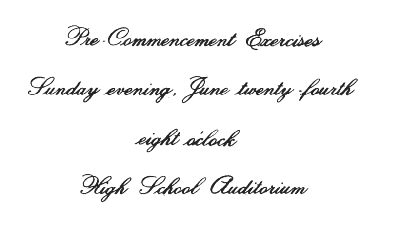 Pre-Commencement Exercises
Sunday evening, June twenty-fourth
eight o'clock
High School Auditorium